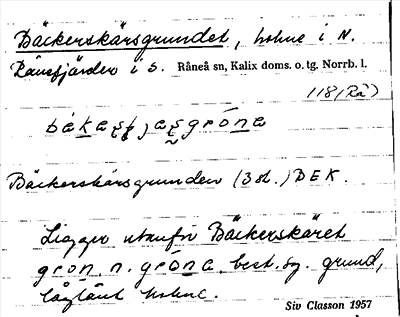 Bäckerskärsgrundet, holme i N.
Rånefjärden i S. Råneå sn, Kalix doms. o. tg. Norrb. l.
118 (Rå)
Bäckerskärsgrunden (3 st.) DEK.
Ligger utanför Bäckerskäret
gron n. gróna best. sg. grund,
låglänt holme.
Siv Classon 1957